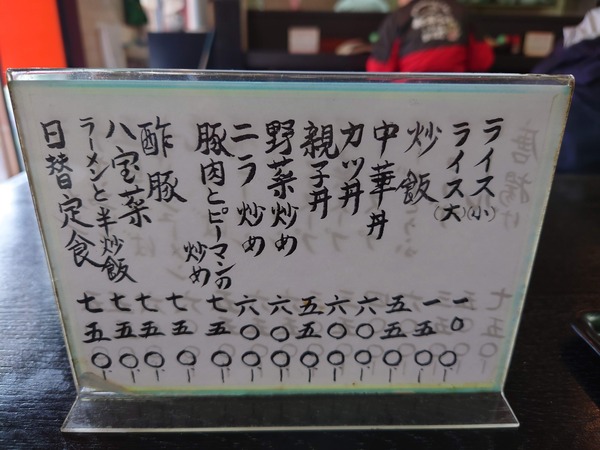 ライス(小) 一〇〇ー
ライス(大) 一五〇ー
炒飯 五五〇ー
中華丼 六〇〇ー
カツ丼 六〇〇ー
親子丼 五五〇ー
野菜炒め 六〇〇ー
ニラ炒め 六〇〇ー
豚肉とピーマンの炒め 七五〇ー
酢豚 七五〇ー
八宝菜 七五〇ー
ラーメンと半炒飯 七五〇ー
日替定食 七五〇ー